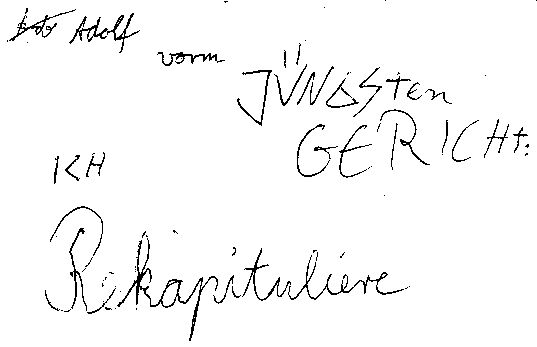 Adolf
vorm
JÜNGSten
GERICHt:
ICH
Rekapituliere